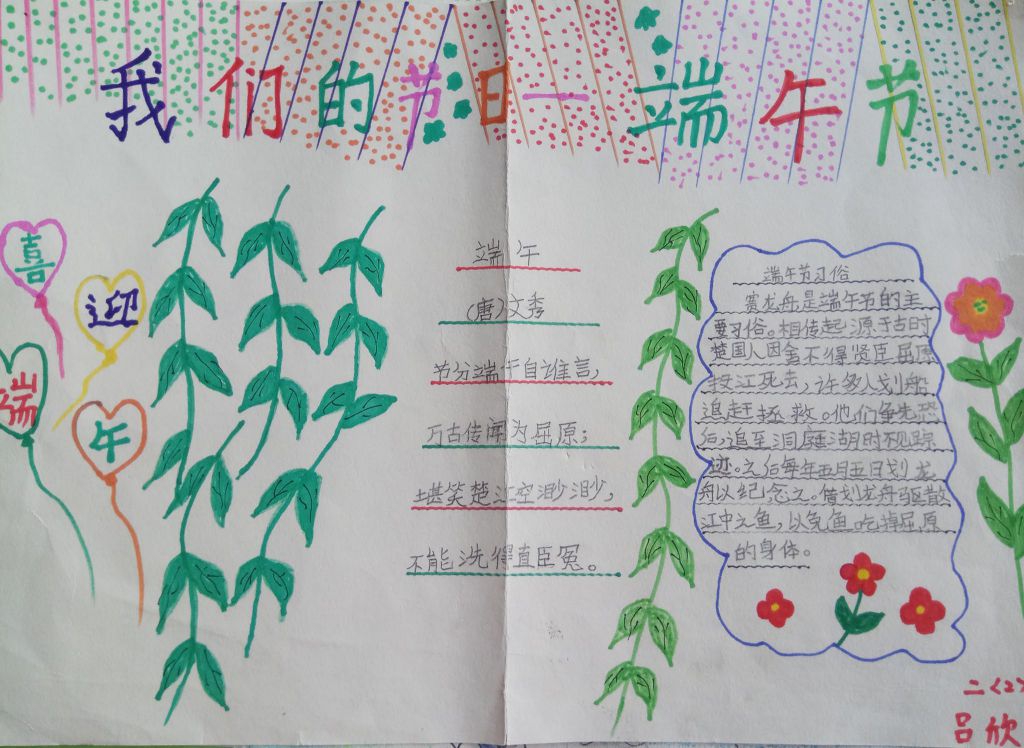 我们的节日一端午节
喜
迎
端
午
端午
(唐)文秀
节分端午自谁言,
万古传闻为屈原;
堪笑楚江空渺渺,
不能洗得直臣冤。
端午节习俗
赛龙舟是端午节的主
要习俗。相传起源于古时
楚国人因舍不得贤臣屈原
投江死去,许多人划船
追赶拯救。他们争先恐
后,追至洞庭湖时不见踪
迹。之后每年五月五日划龙
舟以纪念之。借划龙舟驱散
江中之鱼,以免鱼吃掉屈原
的身体。
二〈2〉
吕欣